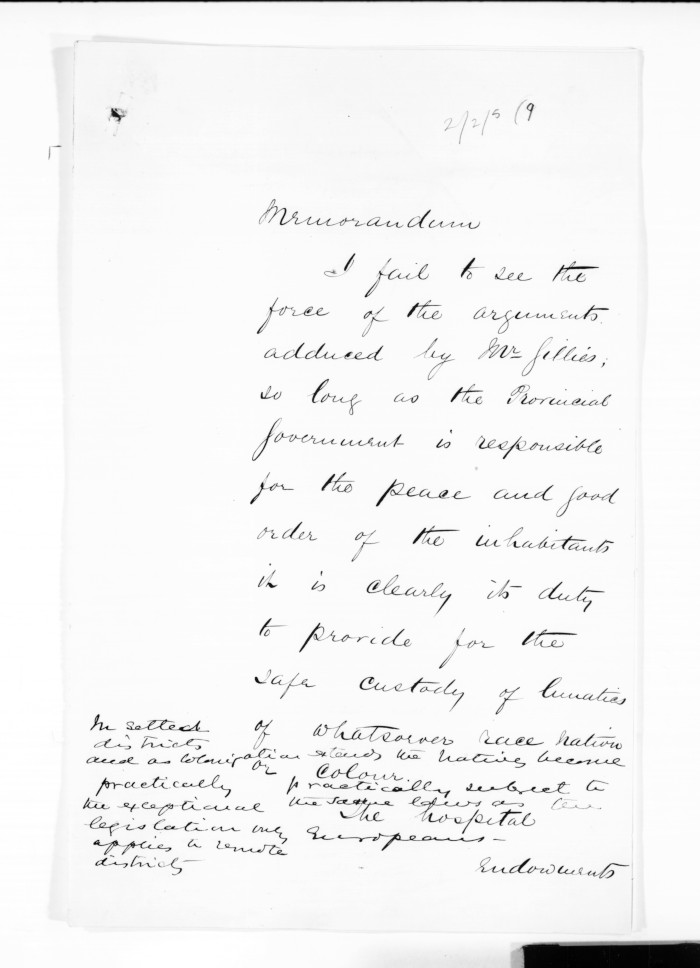 2/2/5 (9
Memorandum
I fail to see the
force of the arguments
adduced by Mr Gillies;
so long as the Provincial
Government is responsible
for the peace and good
order of the inhabitants
it is clearly its duty
to provide for the
safe custody of lunatics
of whatsoever race nation
or colour.
The hospital
Endowments
In settled
districts
and as Colonization extends the Natives become
practically practically subject to
the same laws as the
Europeans –
the exceptional
legislation only
applies to remote
districts